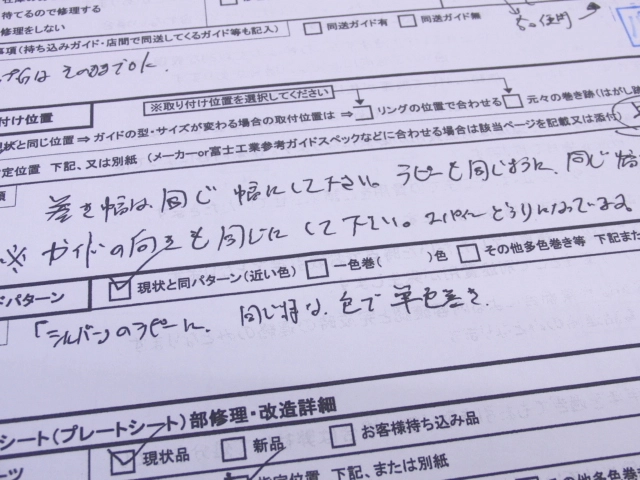 待てるので修理する
修理をしない
同送ガイド有 同送ガイド無
事項(持ち込みガイド・店間で同送してくるガイド等も記入)
はそのままでOK.
付け位置
※取り付け位置を選択してください
現状と同じ位置⇒ガイドの型・サイズが変わる場合の取付位置は⇒ リングの位置で合わせる 元々の巻き跡(はがし跡
定位置 下記、又は別紙 (メーカーor富士工業参考ガイドスペックなどに合わせる場合は該当ページを記載又は添付)
巻き幅は、同じ幅にして下さい。ラピーも同じように、同じ幅
※ ガイドの向きも同じにして下さい。スパイン
ドパターン
現状と同パターン(近い色) 一色巻( )色 その他多色巻き等 下記また
「シルバー」のラピーに、同じ様な、色で単色巻き.
シート(プレートシート)部修理・改造詳細
現状品 新品 お客様持ち込み品
指定位置 下記、または別紙